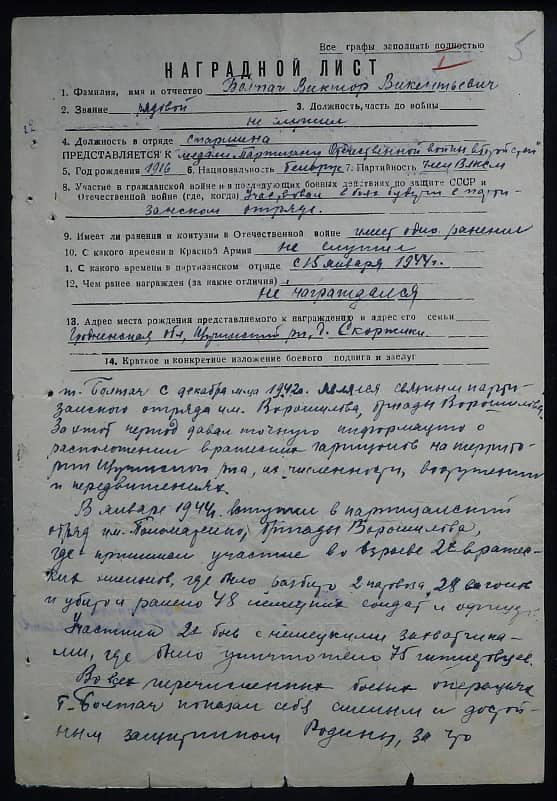 Все графы заполнять полностью
5
НАГРАДНОЙ ЛИСТ
1. Фамилия, имя и отчество Болтач Виктор Викентьевич
2. Звание рядовой 3. Должность, часть до войны
не служил
4. Должность в отряде старшина
ПРЕДСТАВЛЯЕТСЯ К медали Партизану Отечественной войны второй ст
5. Год рождения 1916 6. Национальность белорус 7. Партийность член ВЛКСМ
8. Участие в гражданской войне и в последующих боевых действиях по защите СССР и
Отечественной войне (где, когда) Участвовал в боях будучи в парти-
занском отряде.
9. Имеет ли ранения и контузии в Отечественной войне имеет одно ранение
10. С какого времени в Красной Армии не служил
1. С какого времени в партизанском отряде с 15 января 1944г.
12. Чем ранее награжден (за какие отличия)
не награждался
13. Адрес места рождения представляемого к награждению и адрес его семьи
Гродненская обл, Щучинский р-н, Скоржики.
14. Краткое и конкретное изложение боевого подвига и заслуг
т. Болтач с декабря м-ца 1942г. являлся связным парти-
занского отряда им. Ворошилова, бригады Ворошилова.
За этот период давал точную информацию о
расположении вражеских гарнизонов на террито-
рии Щучинского р-на, их численности, вооружении
и передвижениях.
В январе 1944г. вступил в партизанский
отряд им. Пономаренко, бригады Ворошилова,
где принимал участие во взрыве 2х вражес-
ких эшелонов, где было разбито 2 паровоза, 28 вагонов
и убито и ранено 48 немецких солдат и офицер
Участник 2х боев с немецкими захватчика-
ми, где было уничтожено 75 гитлеровцев.
Во всех перечисленных боевых операциях
т. Болтач показал себя смелым и достой-
ным защитником Родины, за что